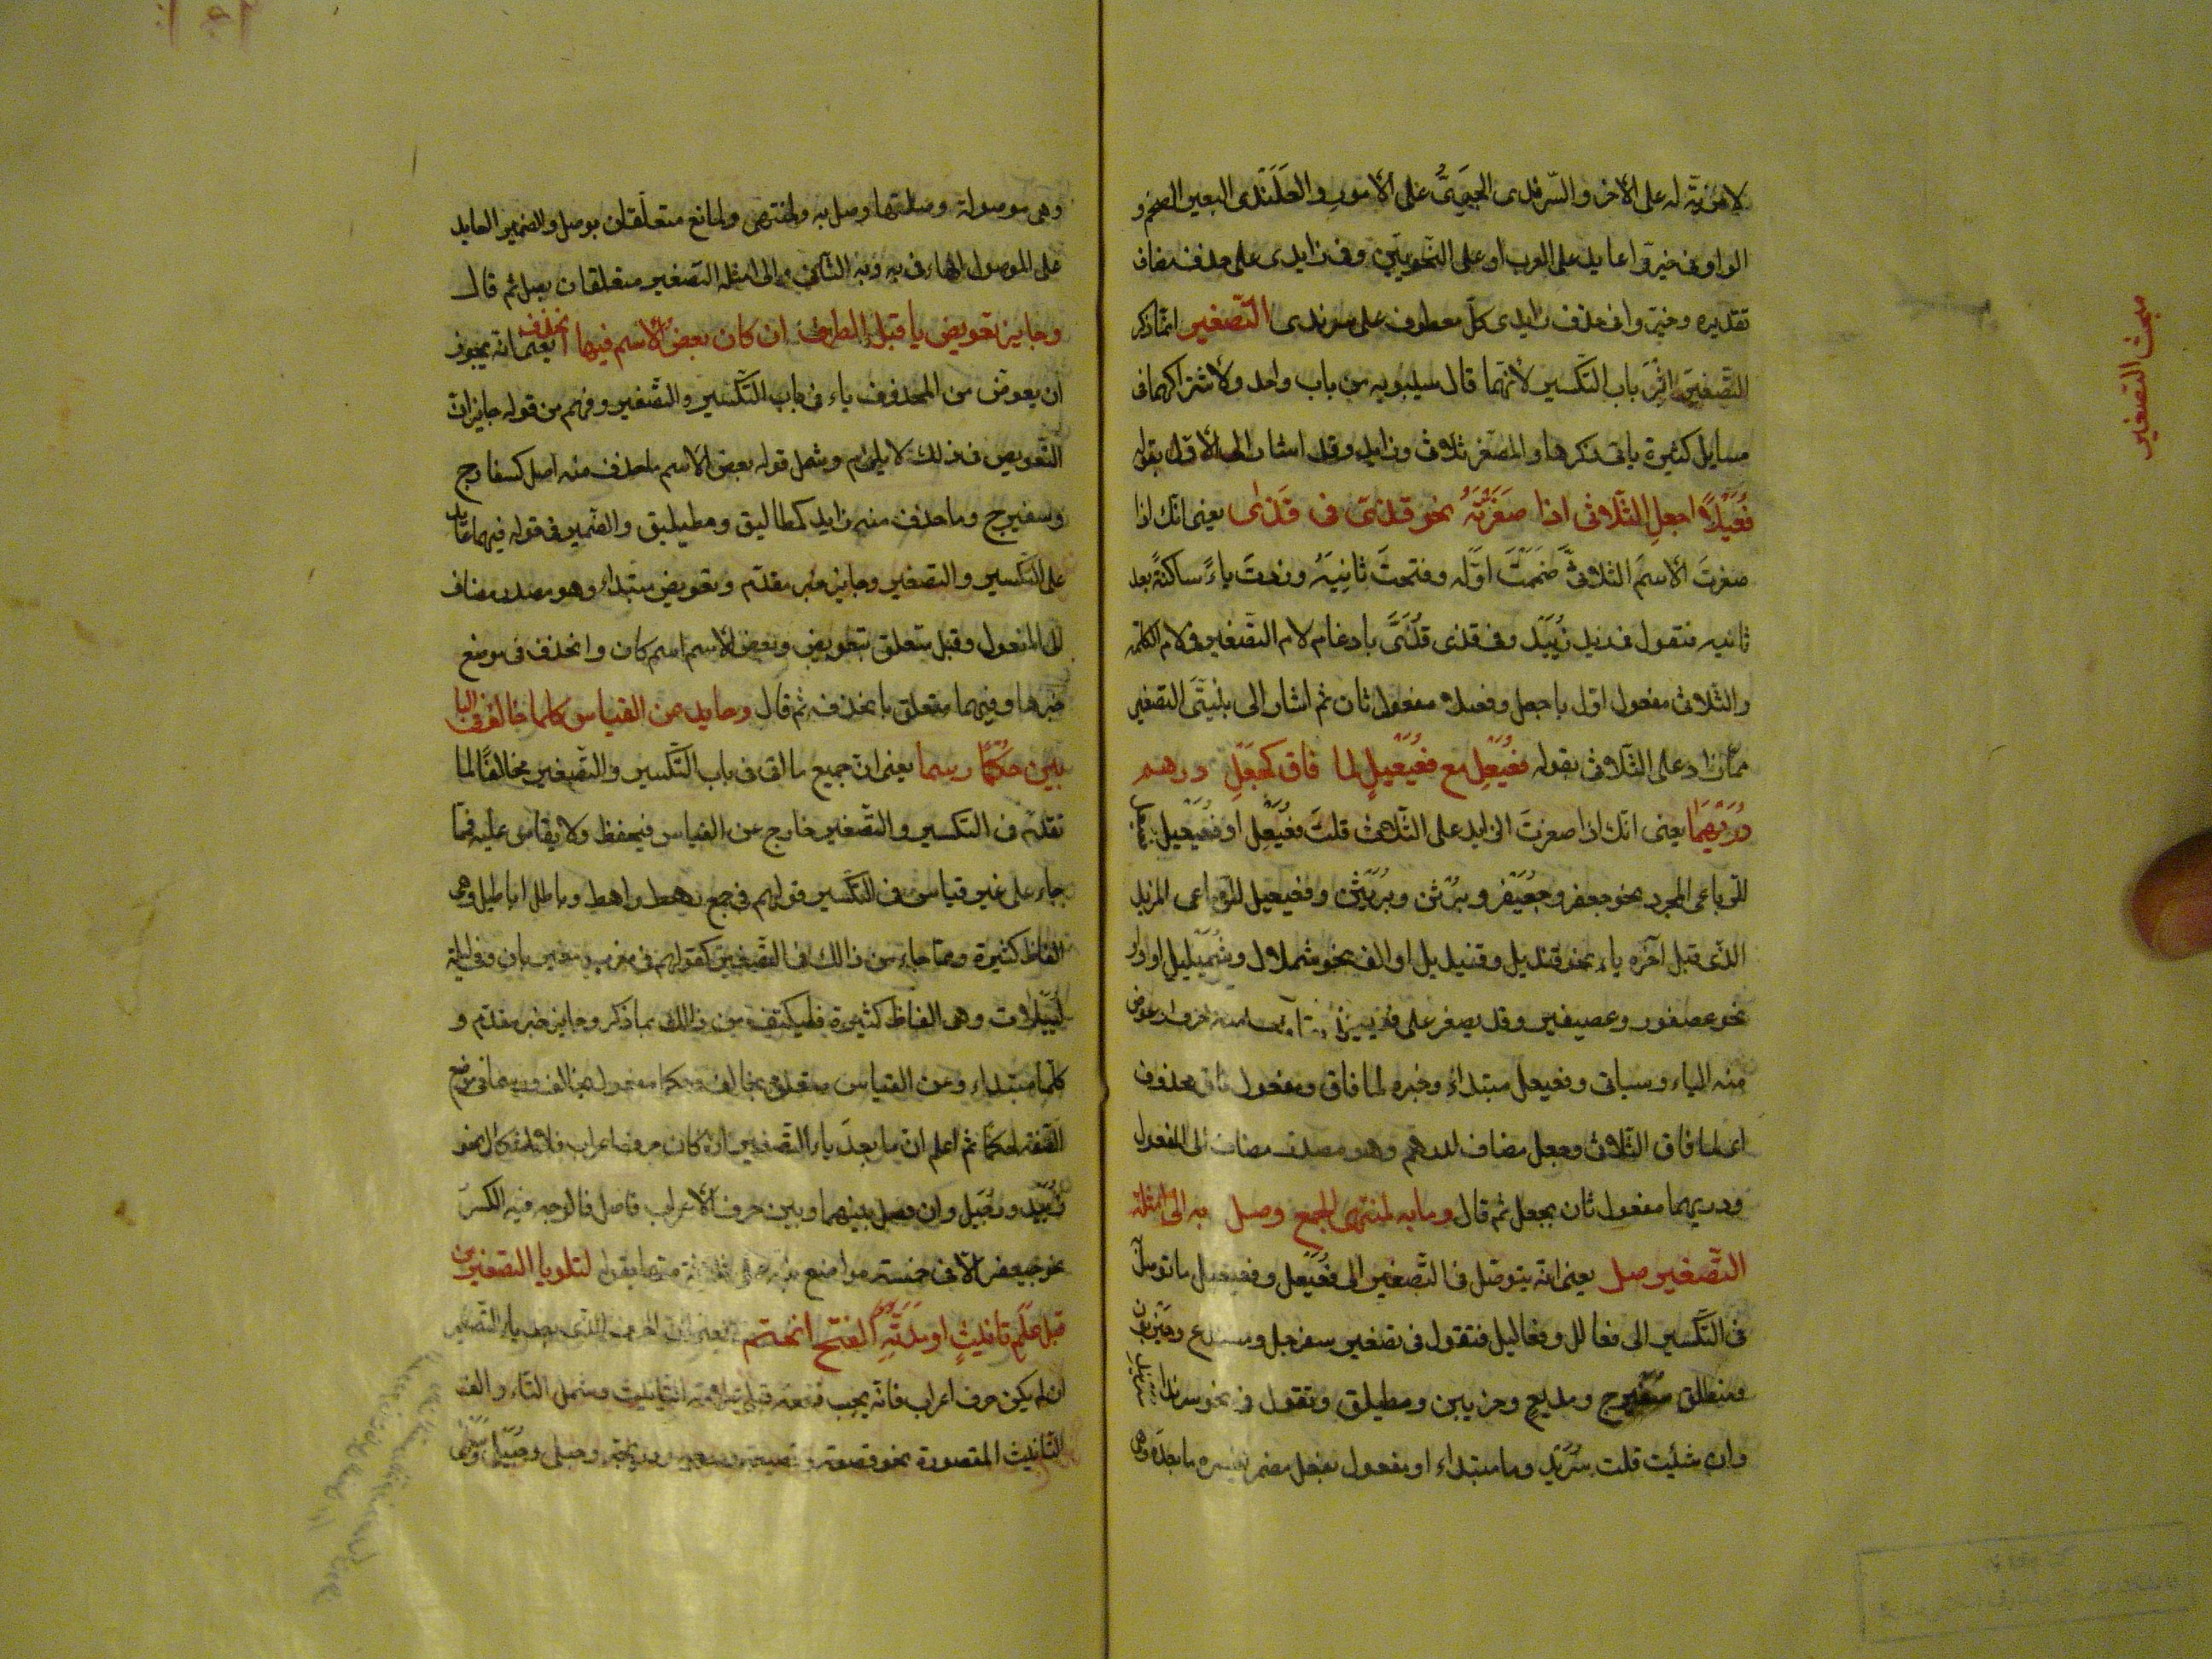 لا مزية له على الآخر والسرندى الجرىّ على الامور والعلندى البعير الضخم و
الواو فى خيروا عايد على العرب او على النحويين وفى زايدى على حذف مضاف
تقديره وخيروا فى حذف زايدى كل معطوف على سرندى التصغير انما ذكر
التصغير اثر باب التكسير لانهما قال سيبويه من باب واحد ولاشتراكهما فى
مسايل كثيرة ياتى ذكرها والمصغر ثلاثى وزايد وقد اشار الى الاول بقوله
فُعَيْلًا اجعل الثلاثى اذا صَغَّرْتَهُ نحو قذىّ فى قَذٰى يعنى انك اذا
صغرت الاسم الثلاثى ضممت اوّله وفتحت ثانيه وزدت ياءً ساكنةً بعد
ثانيه فتقول فى زيد زُيَيْد وفى قذى قُذَىّ بادغام لام التصغير فى لام الكلمة
والثلاثى مفعول اول باجعل وفعيلا مفعول ثان ثم اشار الى بنيتى التصغير
مما زاد على الثلاثى بقوله فُعَيْعِل مع فُعَيْعِيل لما فاق كجعل درهم
دُرَيْهِمَا يعنى انك اذا صغرت الزايد على الثلاثى قلت فُعَيْعِل او فُعَيْعِيل
للرباعى المجرد نحو جعفر وجُعَيْفر وبرثن وبُرَيْثن وفعيعيل للرباعى المزيد
الذى قبل آخره ياء نحو قنديل وقنيديل او الف نحو شملال وشُمَيْليل او واو
نحو عصفور وعصيفير وقد يصغر على
منه الياء وسياتى وفعيعل مبتداء وخبره لما فاق ومفعول فاق محذوف
اى لما فاق الثلاثى وجعل مضاف لدرهم وهو مصدر مضاف الى المفعول
ودريهما مفعول ثان بجعل ثم قال وما به لمنتهى الجمع وصل به الى امثلة
التصغير صل يعنى انه يتوصل فى التصغير الى فُعَيْعل وفعيعيل ما توصل
فى التكسير الى فعالل وفعاليل فتقول فى تصغير سفرجل ومستدع وحيزبون
ومنطلق سفيرج ومديع وحزيبين ومطيلق وتقول فى نحو سرندى
وان شئيت قلت سُرَيْد وما مبتداء او مفعول بفعل مضمر يفسره ما بعده وهى
وهى موصولة وصلتها وصل به ولمنتهى ولجامع متعلقان بوصل والضمير العايد
على الموصول الهاء فى به وبه الثانى والى امثلة التصغير متعلقان بصل ثم قال
وجايز تعويض يا قبل الطرف ان كان بعض الاسم فيهما انحذف يعنى انه يجوز
ان يعوض من المحذوف ياء فى باب التكسير والتصغير وفهم من قوله جايز ان
التعويض فى ذلك لا يلزم وشمل قوله بعض الاسم ما حذف منه اصل كسفاريج
وسفيريج وما حذف منه زايد كمطاليق ومطيليق والضمير فى قوله فيهما عايد
على التكسير والتصغير وجايز خبر مقدم وتعويض مبتداء وهو مصدر مضاف
الى المفعول وقبل متعلق بتعويض وبعض الاسم اسم كان وانحذف فى موضع
خبرها وفيهما متعلق بانحذف ثم قال وحايد عن القياس كلما خالف فى البا
بين حُكْمًا رسما يعنى ان جميع ما اتى فى باب التكسير والتصغير مخالفًا لما
تقدم فى التكسير والتصغير خارج عن القياس فيحفظ ولا يقاس عليه فمما
جاء على غير قياس فى التكسير قولهم فى جمع رهط اراهط وباطل اباطيل وهى
الفاظ كثيرة ومما جاء من ذالك فى التصغير كقولهم فى مغرب مغيربان وفى ليلة
لُيَيْلات وهى الفاظ كثيرة فليكتف من ذالك بما ذكر وحايد خبر مقدم و
كلما مبتداء وعن القياس متعلق بخالف وحكما مفعول بخالف ورسما فى موضع
الصفة لحكما ثم اعلم ان ما بعد ياء التصغير ان كان حرف اعراب فلا اشكال نحو
زُيَيْد ورُجَيْل وان فصل بينهما وبين حرف الاعراب فاصل فالوجه فيه الكسر
نحو جعيفر الا فى خمسة مواضع نبه على ثلاثة منها بقوله لتلو يا التصغير من
قبل عَلَم تانيثٍ او مَدَّتِهِ الفتح انحتم يعنى ان الحرف الذى بعد ياء التصغير
ان لم يكن حرف اعراب فانه يجب فتحه قبل علامة التانيث وشمل التاء والف
التانيث المقصورة نحو قصعة وقصيعة ودرجة ودريجة وحبلى وحُبَيْلى

مبحث التصغير